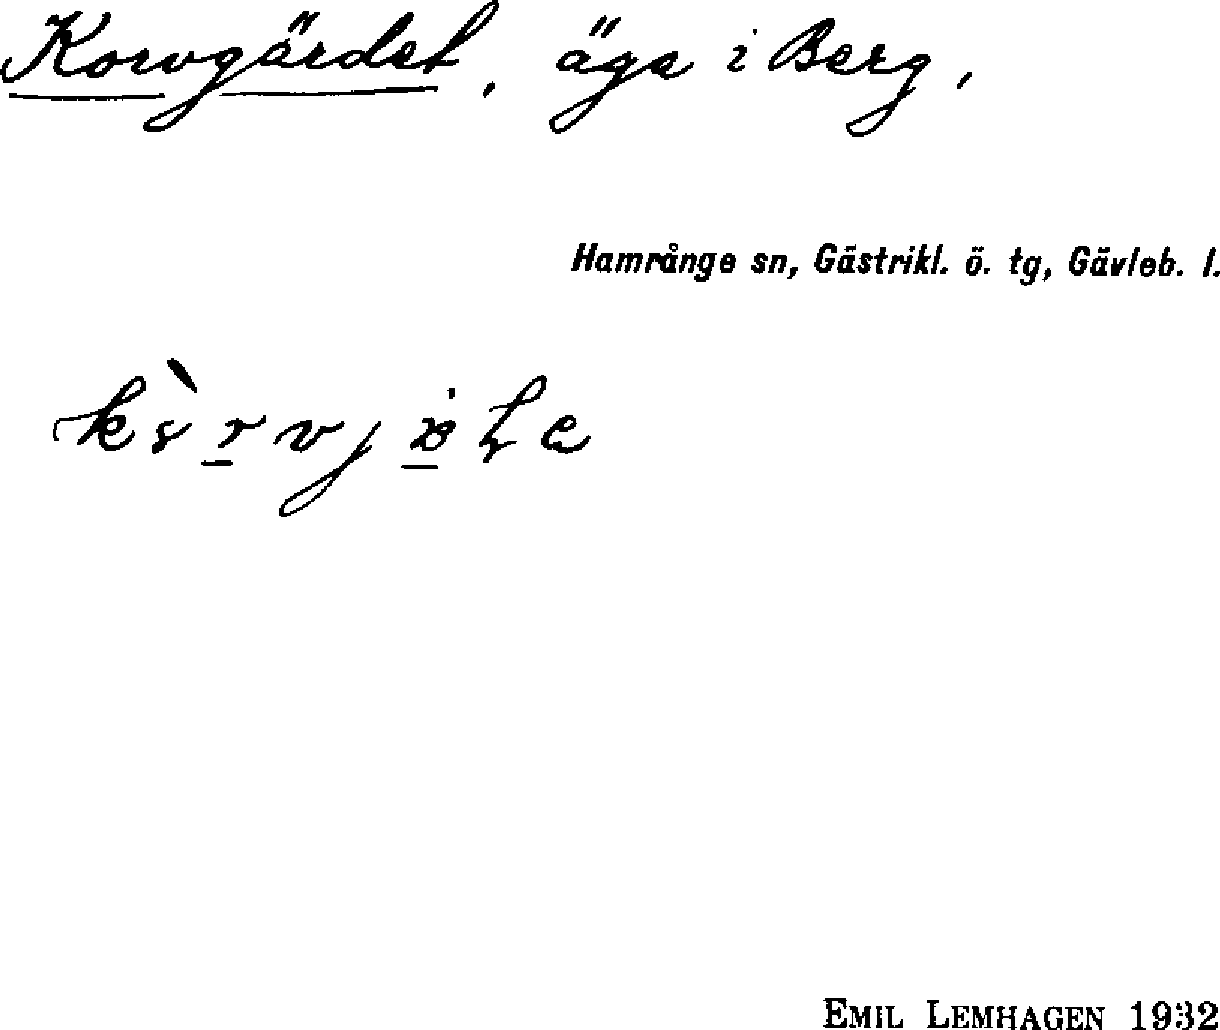 Korvgärdet, äga i Berg,
Hamrånge sn, Gästrikl. ö. tg, Gävleb. l.
EMIL LEMHAGEN 1932